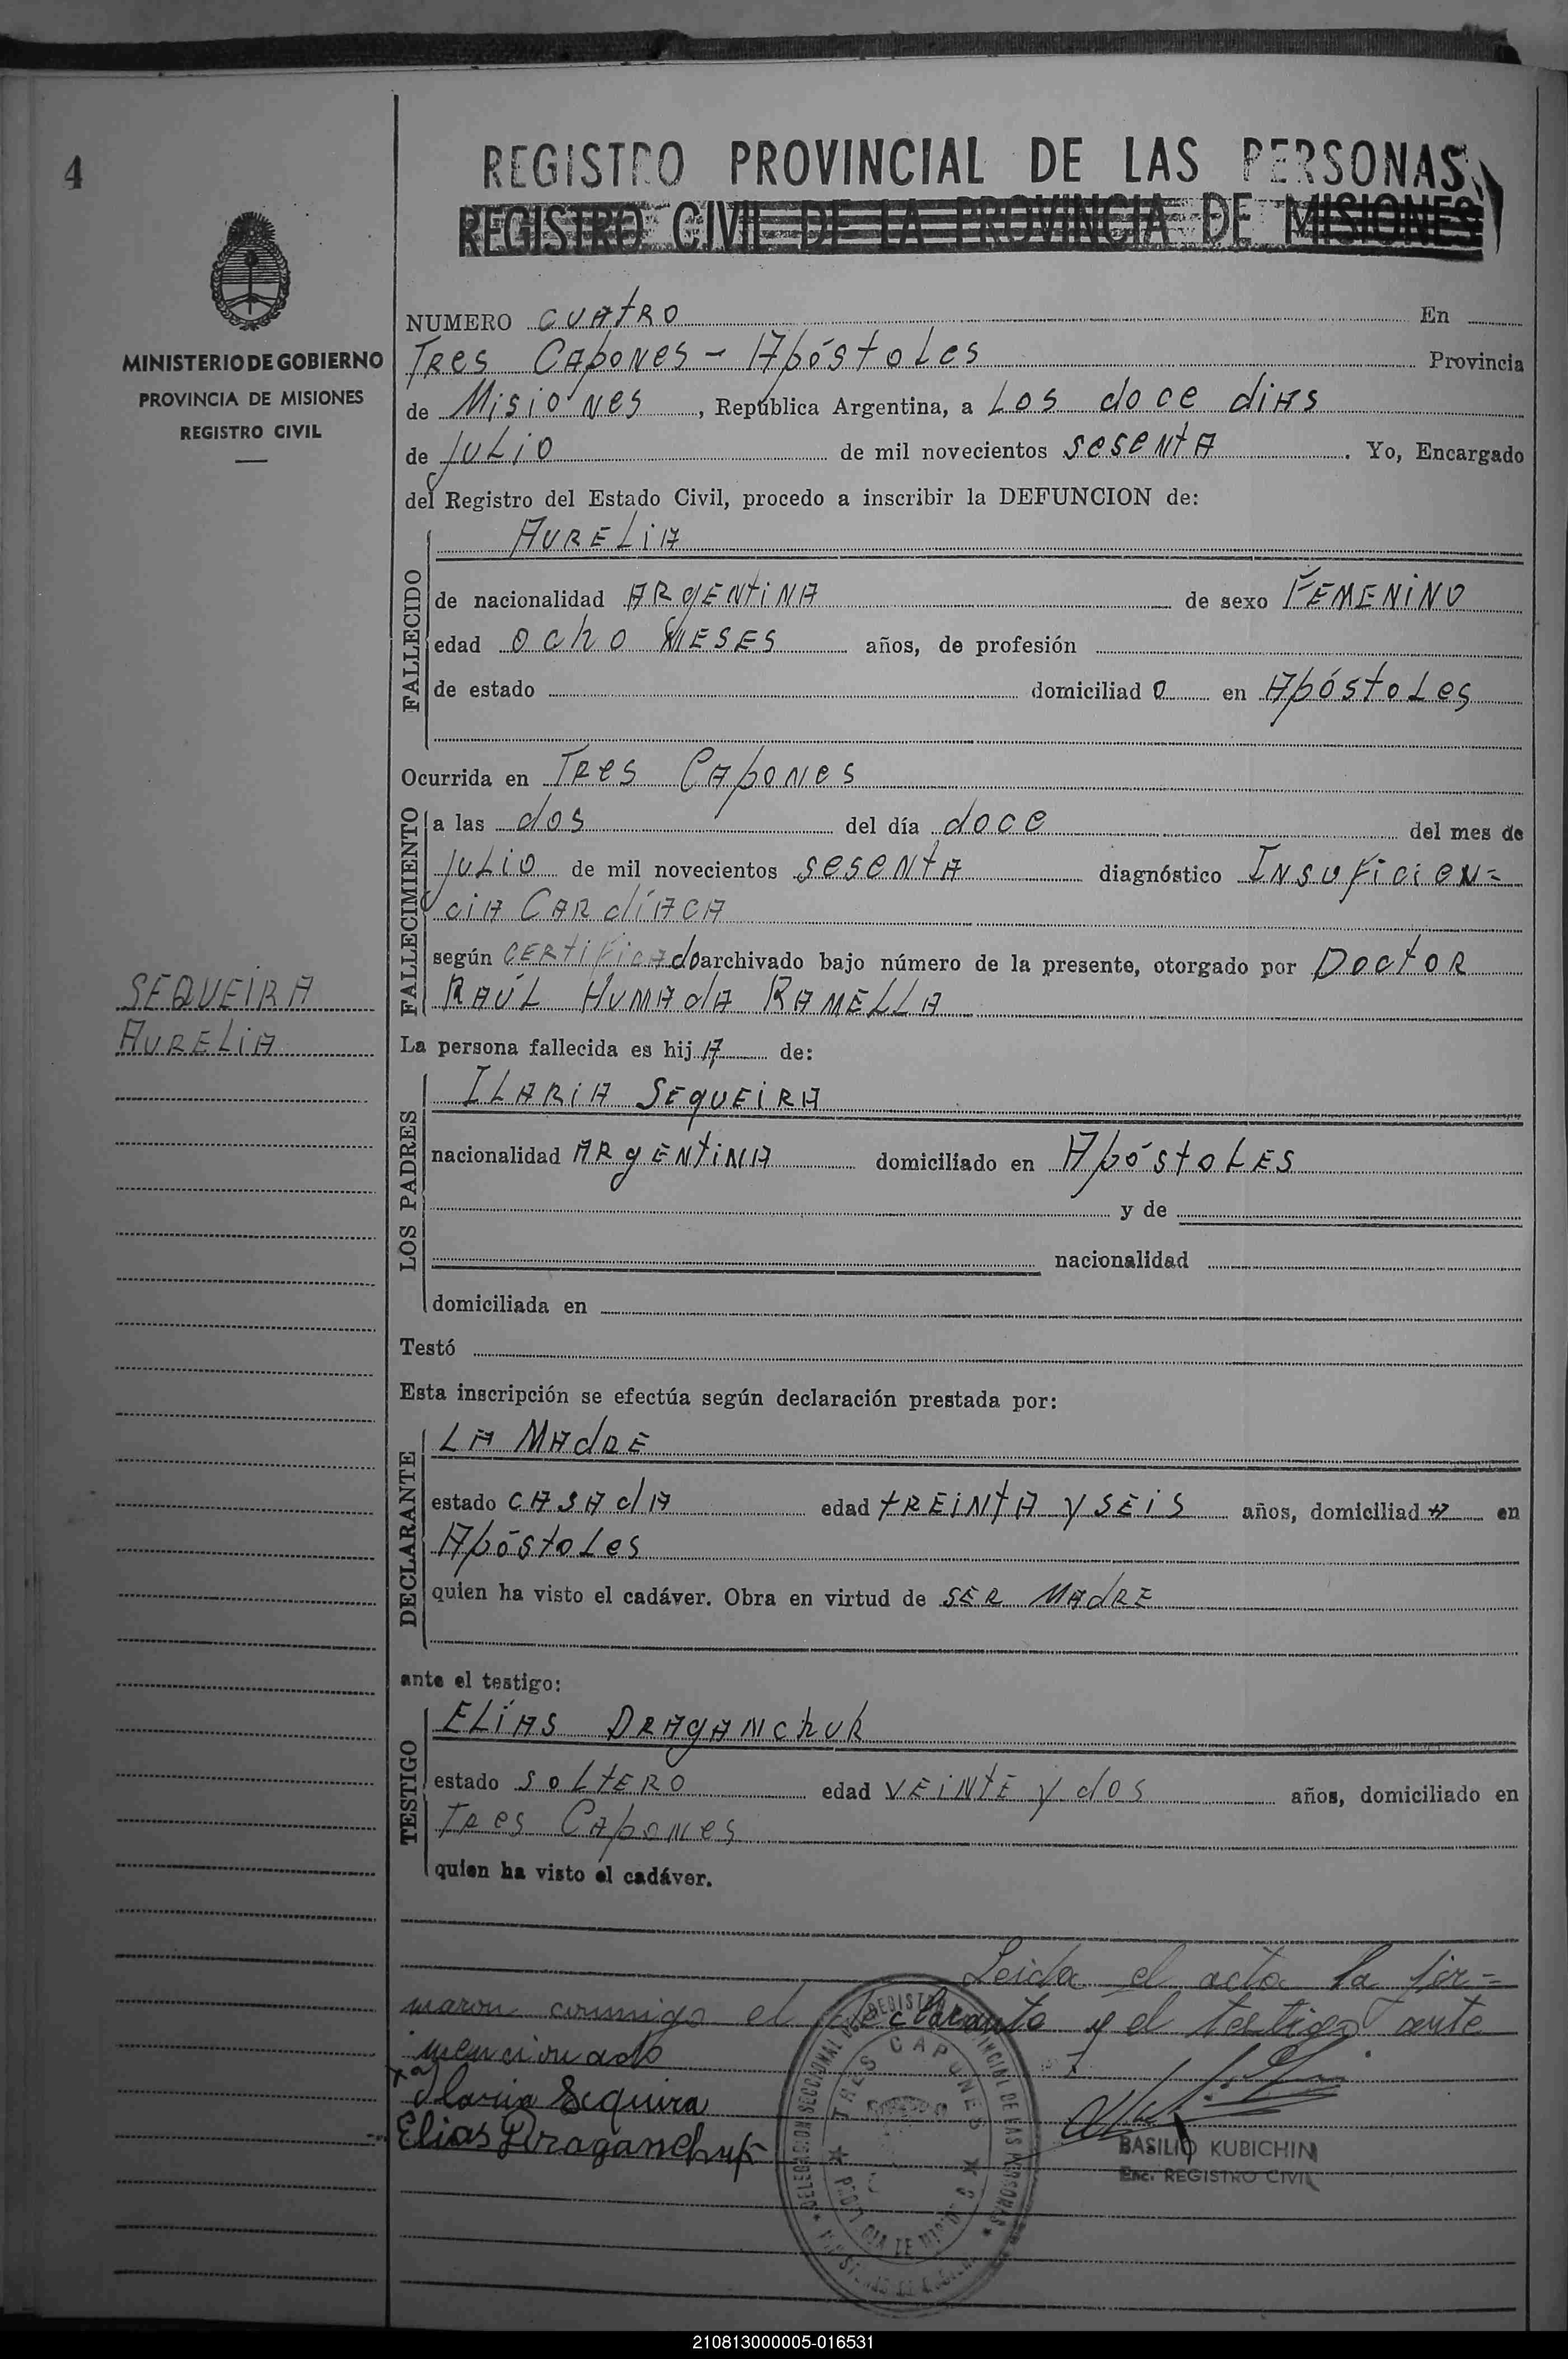 4
REGISTRO PROVINCIAL DE LAS PERSONAS
REGISTRO CIVIL DE LA PROVINCIA DE MISIONES
MINISTERIO DE GOBIERNO
PROVINCIA DE MISIONES
REGISTRO CIVIL
NUMERO CUAtRO En
TRes CApoNes - Apóstoles Provincia
de Misiones, República Argentina, a Los doce diAs
de Julio de mil novecientos sesentA. Yo, Encargado
del Registro del Estado Civil, procedo a inscribir la DEFUNCION de:
AURELiA
FALLECIDO
de nacionalidad ARgENtiNA de sexo FEMENiNO
edad ocho MESES años, de profesión
de estado domiciliad o en Apóstoles
Ocurrida en TRes CApoNes
FALLECIMIENTO
a las dos del día doce del mes de
Julio de mil novecientos sesentA diagnóstico INsuficieN=
ciA CARdíACA
según CERtificAdo archivado bajo número de la presente, otorgado por DoctoR
RAÚL HUMAdA RAMELLA
SEQUEIRA
AURELiA
La persona fallecida es hij A de:
LOS PADRES
ILARiA SEqUEiRA
nacionalidad ARgENtiNA domiciliado en ApóstoLES
y de
nacionalidad
domiciliada en
Testó
Esta inscripción se efectúa según declaración prestada por:
DECLARANTE
LA MAdRE
estado CASAdA edad tREiNtA y SEiS años, domiciliad A en
Apóstoles
quien ha visto el cadáver. Obra en virtud de SER MAdRE
ante el testigo:
TESTIGO
ELíAS DRAgANchuk
estado SoLtERO edad VEiNtE y dos años, domiciliado en
TRes CApoNes
quien ha visto el cadáver.
Leida el acta la fir=
maron conmigo el declarante y el testigo ante
mencionado
Ilaria Sequira
Elias Draganchuk
TRES CAPONES
BASILIO KUBICHIN
Enc. REGISTRO CIVIL
210813000005-016531